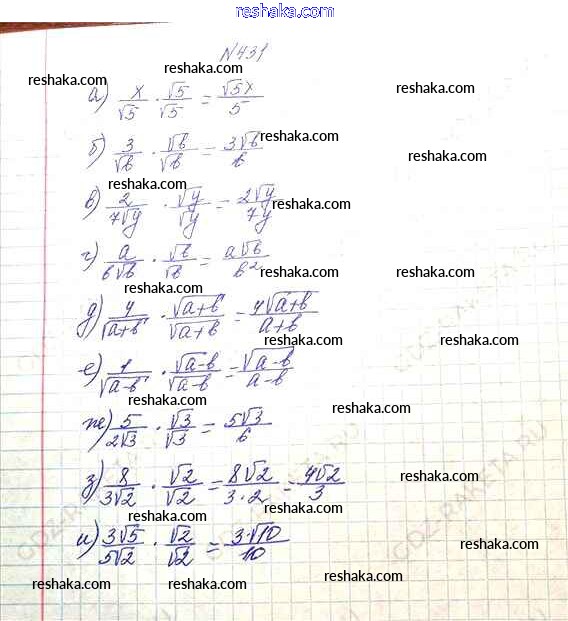 reshaka.com
№431
reshaka.com reshaka.com
а) x/√5 · √5/√5 = √5x/5
reshaka.com reshaka.com
б) 3/√b · √b/√b = 3√b/b
reshaka.com reshaka.com
в) 2/7√y · √y/√y = 2√y/7y
reshaka.com
г) a/b√b · √b/√b = a√b/b²
reshaka.com reshaka.com
д) 4/√a+b · √a+b/√a+b = 4√a+b/a+b
reshaka.com reshaka.com
е) 1/√a-b · √a-b/√a-b = √a-b/a-b
reshaka.com reshaka.com
ж) 5/2√3 · √3/√3 = 5√3/6
reshaka.com reshaka.com
з) 8/3√2 · √2/√2 = 8√2/3·2 = 4√2/3
reshaka.com reshaka.com
и) 3√5/5√2 · √2/√2 = 3·√10/10
reshaka.com reshaka.com reshaka.com reshaka.com
GDZ-RAKETA.RU